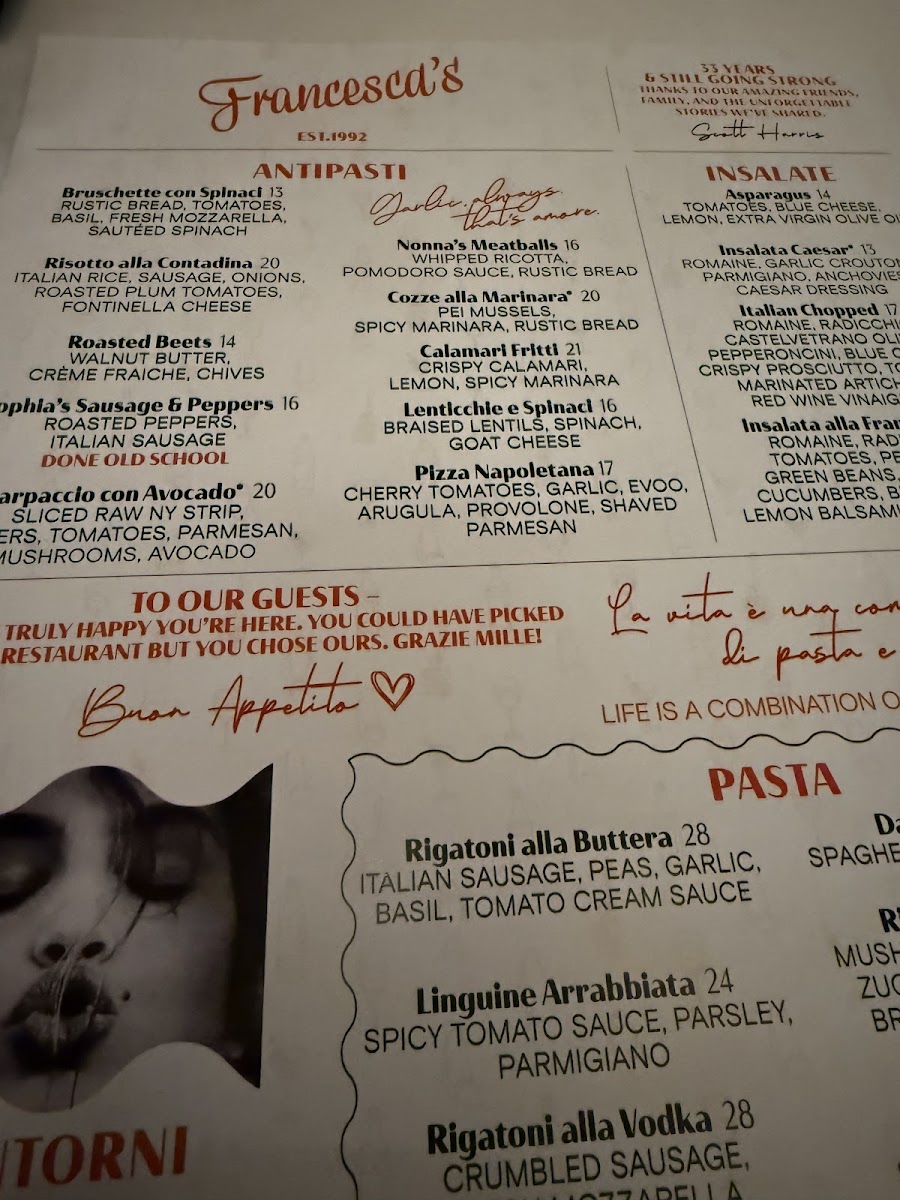 Francesca's
EST.1992
33 YEARS
& STILL GOING STRONG
THANKS TO OUR AMAZING FRIENDS,
FAMILY, AND THE UNFORGETTABLE
STORIES WE'VE SHARED.
Scott Harris
ANTIPASTI
Bruschette con Spinaci 13
RUSTIC BREAD, TOMATOES,
BASIL, FRESH MOZZARELLA,
SAUTÉED SPINACH
Risotto alla Contadina 20
ITALIAN RICE, SAUSAGE, ONIONS,
ROASTED PLUM TOMATOES,
FONTINELLA CHEESE
Roasted Beets 14
WALNUT BUTTER,
CRÈME FRAICHE, CHIVES
ophia's Sausage & Peppers 16
ROASTED PEPPERS,
ITALIAN SAUSAGE
DONE OLD SCHOOL
arpaccio con Avocado* 20
SLICED RAW NY STRIP,
ERS, TOMATOES, PARMESAN,
MUSHROOMS, AVOCADO
Garlic. always.
that's amore.
Nonna's Meatballs 16
WHIPPED RICOTTA,
POMODORO SAUCE, RUSTIC BREAD
Cozze alla Marinara* 20
PEI MUSSELS,
SPICY MARINARA, RUSTIC BREAD
Calamari Fritti 21
CRISPY CALAMARI,
LEMON, SPICY MARINARA
Lenticchie e Spinaci 16
BRAISED LENTILS, SPINACH,
GOAT CHEESE
Pizza Napoletana 17
CHERRY TOMATOES, GARLIC, EVOO,
ARUGULA, PROVOLONE, SHAVED
PARMESAN
INSALATE
Asparagus 14
TOMATOES, BLUE CHEESE,
LEMON, EXTRA VIRGIN OLIVE OI
Insalata Caesar* 13
ROMAINE, GARLIC CROUTON
PARMIGIANO, ANCHOVIES
CAESAR DRESSING
Italian Chopped 17
ROMAINE, RADICCHI
CASTELVETRANO OLI
PEPPERONCINI, BLUE C
CRISPY PROSCIUTTO, TO
MARINATED ARTICH
RED WINE VINAIG
Insalata alla Fran
ROMAINE, RAD
TOMATOES, PE
GREEN BEANS,
CUCUMBERS, B
LEMON BALSAMI
TO OUR GUESTS –
TRULY HAPPY YOU'RE HERE. YOU COULD HAVE PICKED
RESTAURANT BUT YOU CHOSE OURS. GRAZIE MILLE!
Buon Appetito
La vita è una com
di pasta e
LIFE IS A COMBINATION O
PASTA
Rigatoni alla Buttera 28
ITALIAN SAUSAGE, PEAS, GARLIC,
BASIL, TOMATO CREAM SAUCE
Linguine Arrabbiata 24
SPICY TOMATO SAUCE, PARSLEY,
PARMIGIANO
Rigatoni alla Vodka 28
CRUMBLED SAUSAGE,
MOZZARELLA
Da
SPAGHE
RI
MUSH
ZUC
BR
NTORNI